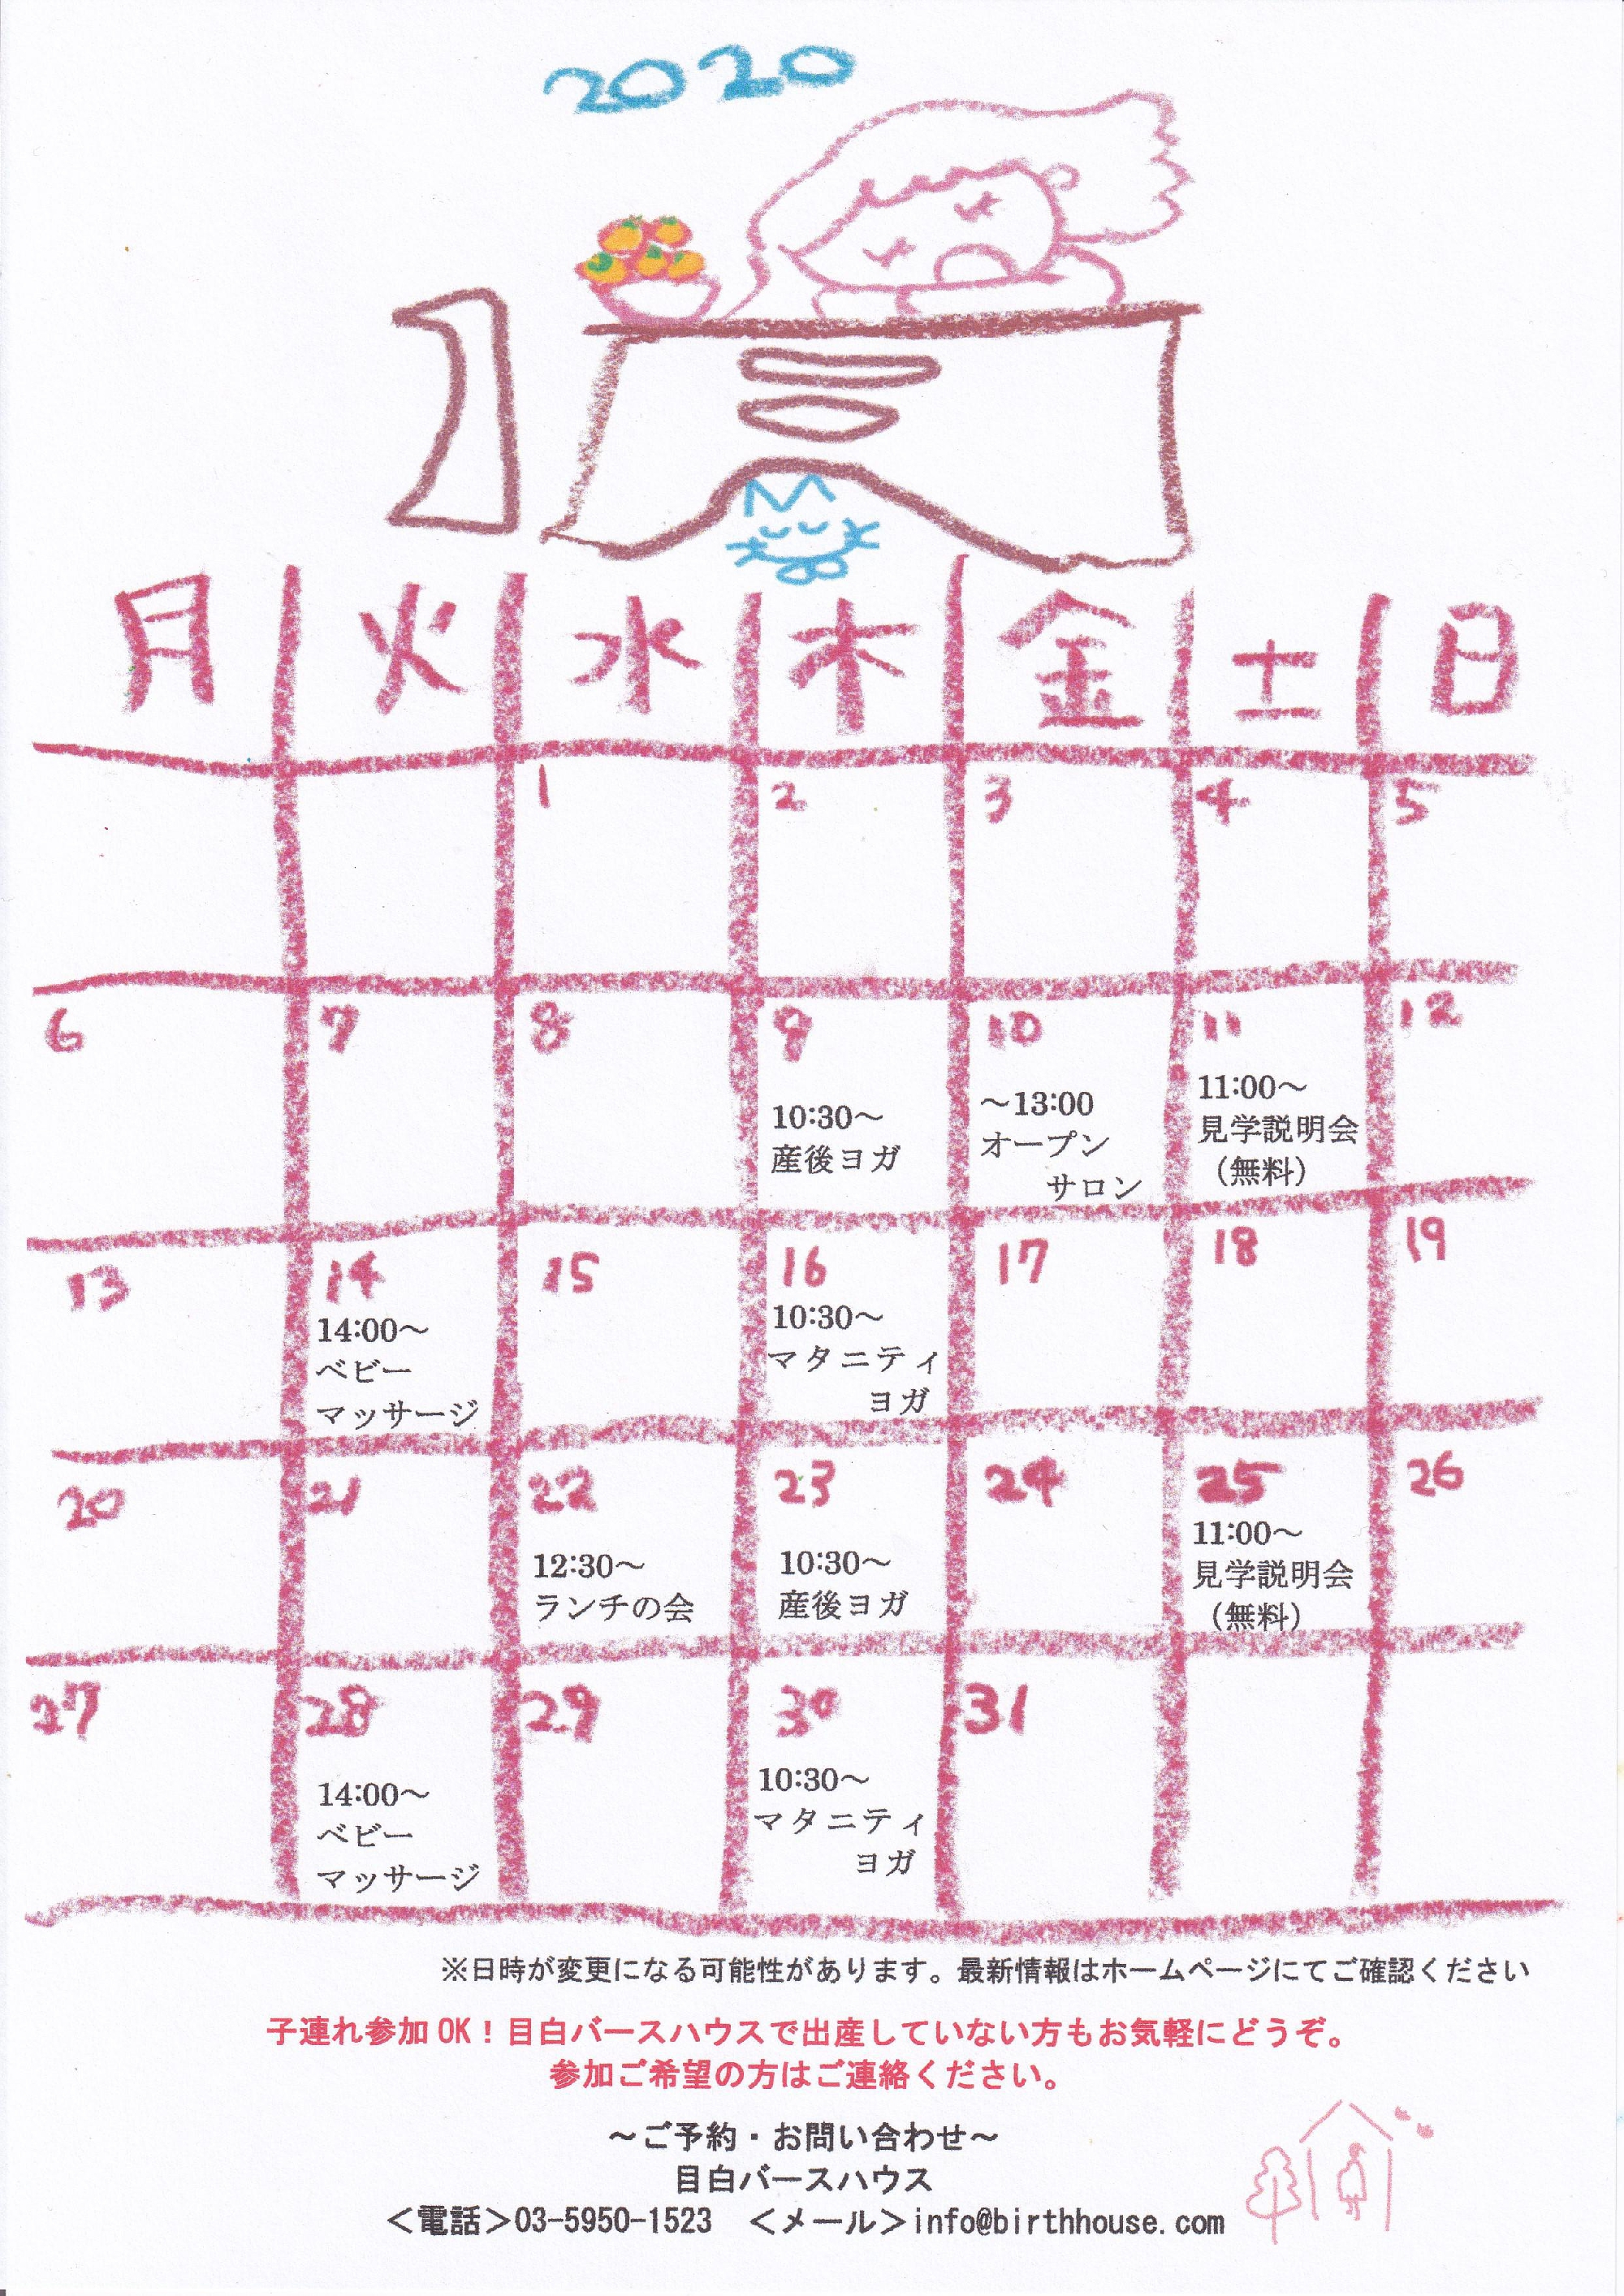 2020
1月
月 火 水 木 金 土 日
1 2 3 4 5
6 7 8 9 10 11 12
10:30～
産後ヨガ
～13:00
オープン
サロン
11:00～
見学説明会
（無料）
13 14 15 16 17 18 19
14:00～
ベビー
マッサージ
10:30～
マタニティ
ヨガ
20 21 22 23 24 25 26
12:30～
ランチの会
10:30～
産後ヨガ
11:00～
見学説明会
（無料）
27 28 29 30 31
14:00～
ベビー
マッサージ
10:30～
マタニティ
ヨガ
※日時が変更になる可能性があります。最新情報はホームページにてご確認ください
子連れ参加OK！目白バースハウスで出産していない方もお気軽にどうぞ。
参加ご希望の方はご連絡ください。
～ご予約・お問い合わせ～
目白バースハウス
＜電話＞03-5950-1523　＜メール＞info@birthhouse.com